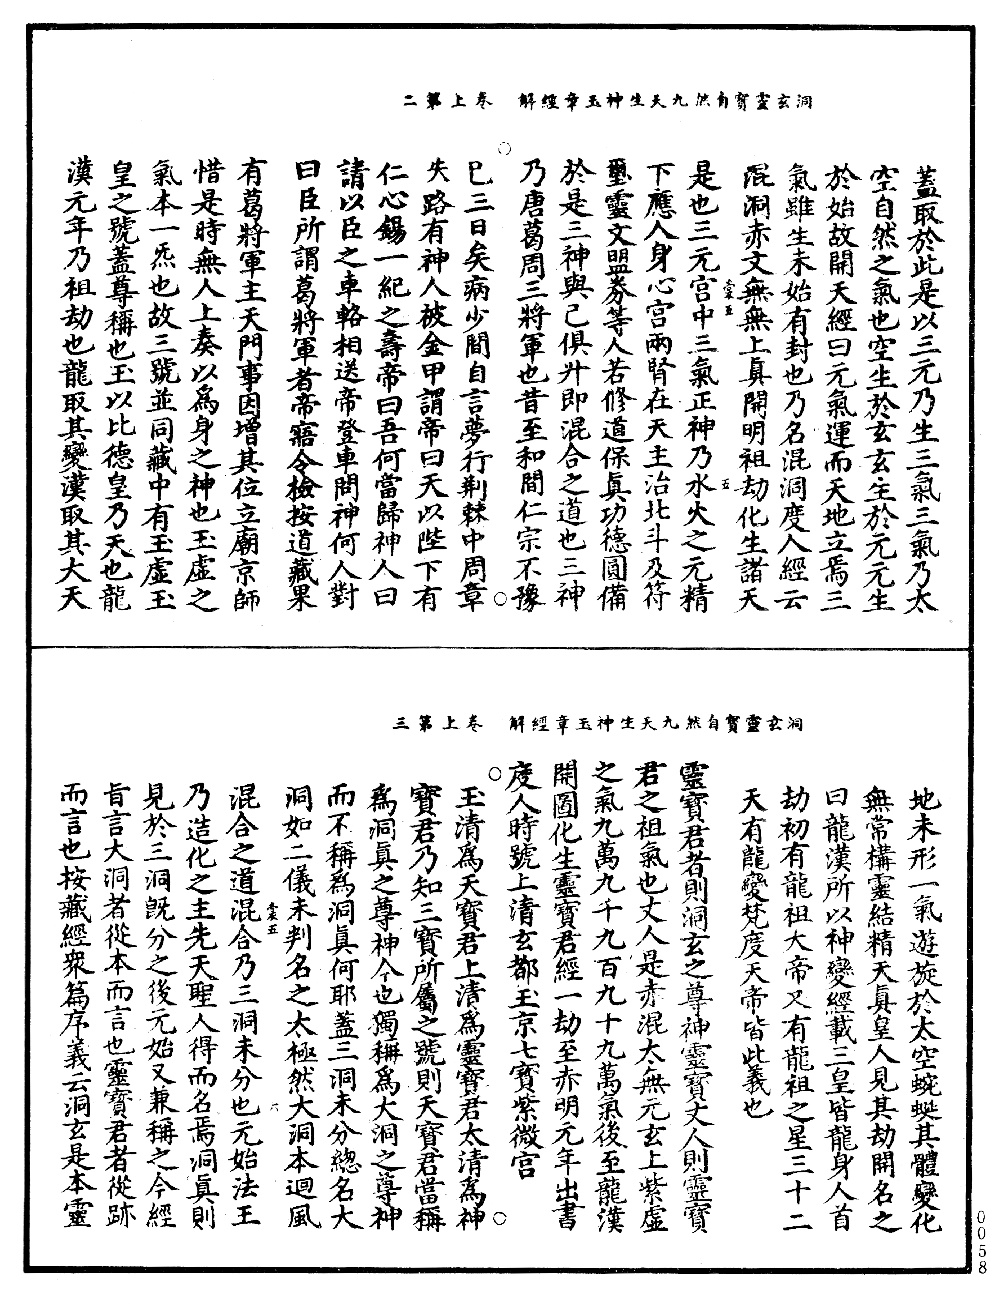 洞玄靈寶自然九天生神玉章經解　卷上第二
蓋取於此是以三元乃生三氣三氣乃太
空自然之氣也空生於玄玄生於元元生
於始故開天經曰元氣運而天地立焉三
氣雖生未始有封也乃名混洞度人經云
混洞赤文無無上真開明祖劫化生諸天
是也三元宮中三氣正神乃水火之元精
下應人身心宮兩腎在天主治北斗及符
璽靈文盟券等人若修道保真功德圓備
於是三神與己俱升即混合之道也三神
乃唐葛周三將軍也昔至和間仁宗不豫
已三日矣病少間自言夢行荆棘中周章
失路有神人被金甲謂帝曰天以陛下有
仁心錫一紀之壽帝曰吾何當歸神人曰
請以臣之車輅相送帝登車問神何人對
曰臣所謂葛將軍者帝寤令檢按道藏果
有葛將軍主天門事因增其位立廟京師
惜是時無人上奏以為身之神也玉虛之
氣本一炁也故三號並同藏中有玉虛玉
皇之號蓋尊稱也玉以比德皇乃天也龍
漢元年乃祖劫也龍取其變漢取其大天
洞玄靈寶自然九天生神玉章經解　卷上第三
地未形一氣遊旋於太空蜿蜒其體變化
無常構靈結精天真皇人見其劫開名之
曰龍漢所以神變經載三皇皆龍身人首
劫初有龍祖大帝又有龍祖之星三十二
天有龍變梵度天帝皆此義也
靈寶君者則洞玄之尊神靈寶丈人則靈寶
君之祖氣也丈人是赤混太無元玄上紫虛
之氣九萬九千九百九十九萬氣後至龍漢
開圖化生靈寶君經一劫至赤明元年出書
度人時號上清玄都玉京七寶紫微宮
玉清為天寶君上清為靈寶君太清為神
寶君乃知三寶所屬之號則天寶君當稱
為洞真之尊神今也獨稱為大洞之尊神
而不稱為洞真何耶蓋三洞未分總名大
洞如二儀未判名之太極然大洞本迴風
混合之道混合乃三洞未分也元始法王
乃造化之主先天聖人得而名焉洞真則
見於三洞既分之後元始又兼稱之今經
旨言大洞者從本而言也靈寶君者從跡
而言也按藏經眾篇序義云洞玄是本靈
0058